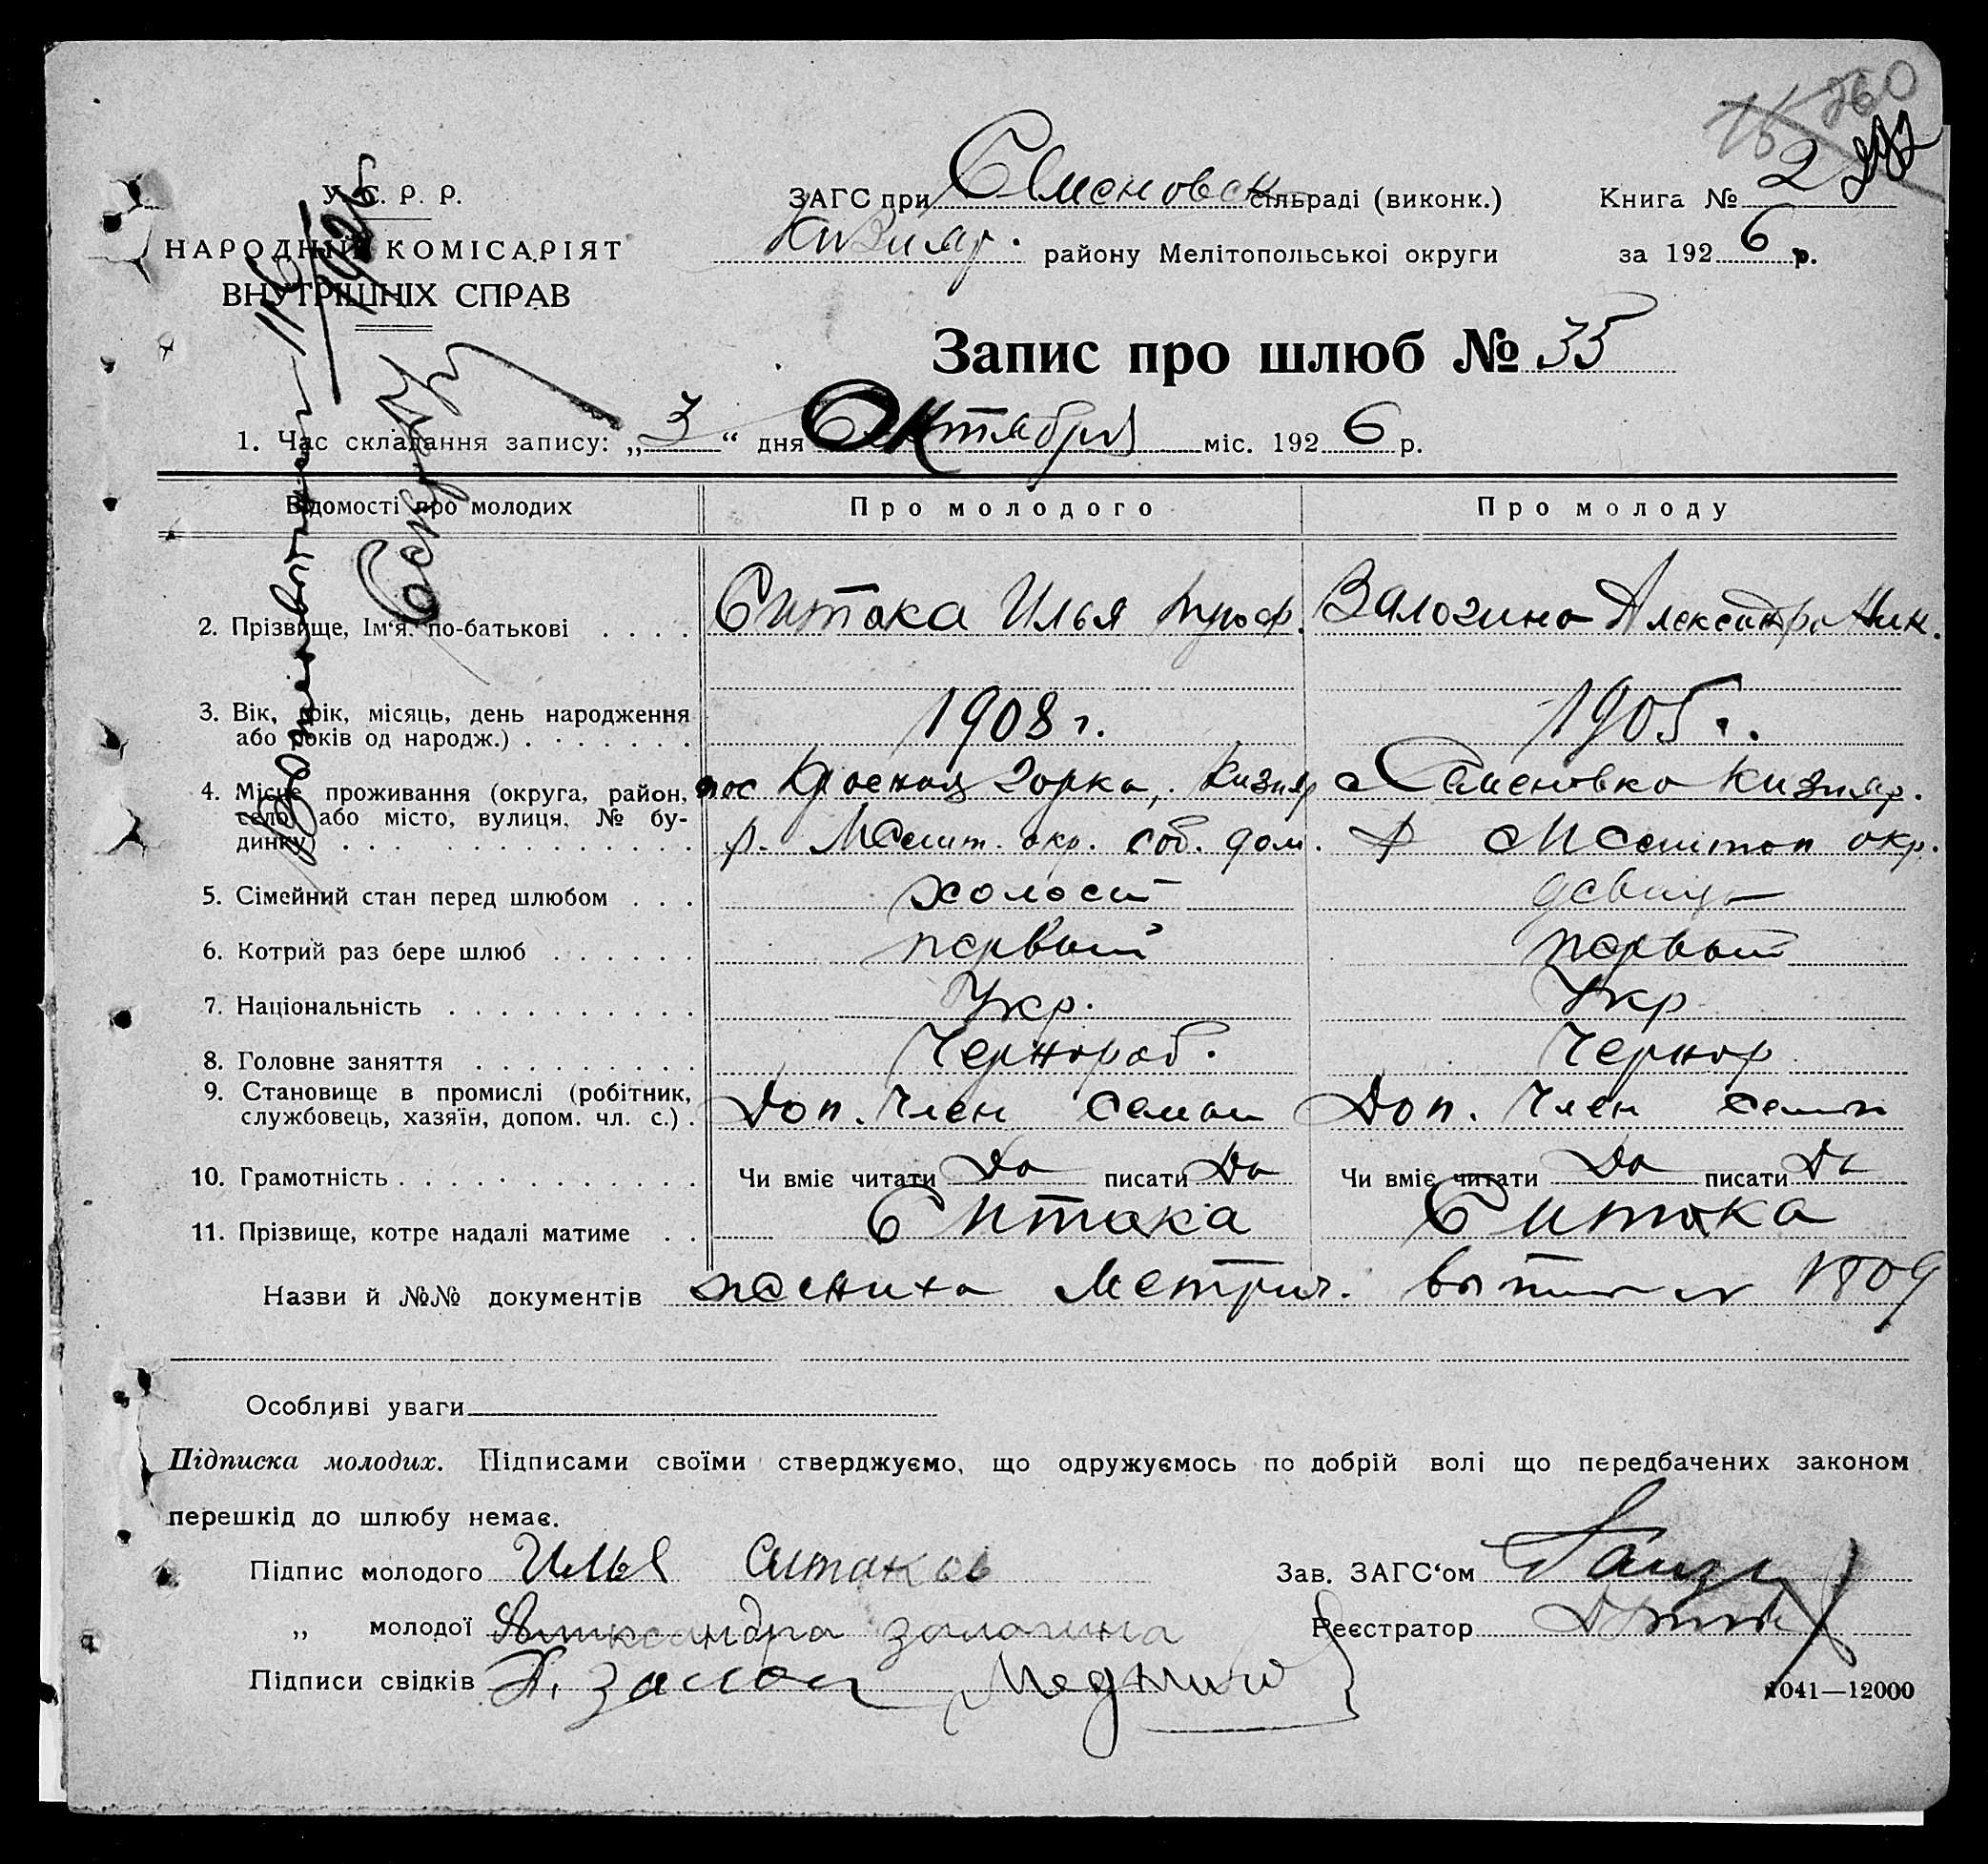 У. С. Р. Р.
НАРОДНИЙ КОМІСАРІЯТ
ВНУТРІШНІХ СПРАВ
ЗАГС при Семеновск сільраді (виконк.)
Кизияр. району Мелітопольської округи
Книга № 2
за 1926 р.
Запис про шлюб № 35
1. Час складання запису: „3“ дня Октября міс. 1926 р.
Відомості про молодих Про молодого Про молоду
2. Прізвище, Ім‘я, по-батькові . . . . Ситака Илья Троф. Залогина Александра Ник.
3. Вік, (рік, місяць, день народження 1908 г. 1905 г.
або років од народж.) . . . . . . .
4. Місце проживання (округа, район, пос Красная Горка, Кизияр с Семеновка Кизияр.
село, або місто, вулиця, № бу-
динку) . . . . . . . . . . . . . р. Мелит. окр. соб. дом. р Мелитоп окр.
5. Сімейний стан перед шлюбом . . . холост девица
6. Котрий раз бере шлюб . . . . . . первый первый
7. Національність . . . . . . . . . . Укр. Укр
8. Головне заняття . . . . . . . . . Чернораб. Чернор
9. Становище в промислі (робітник,
службовець, хазяїн, допом. чл. с.) . Доп. Член семьи Доп. Член семьи
10. Грамотність . . . . . . . . . . . . Чи вміє читати Да писати Да Чи вміє читати Да писати Да
11. Прізвище, котре надалі матиме . . Ситака Ситака
Назви й №№ документів жениха Метрич. выпись № 1809
Особливі уваги
Підписка молодих. Підписами своїми стверджуємо, що одружуємось по добрій волі що передбачених законом
перешкід до шлюбу немає.
Підпис молодого Илья Ситаков Зав. ЗАГС‘ом
„ молодої Александра Залогина Реєстратор
Підписи свідків
1041—12000